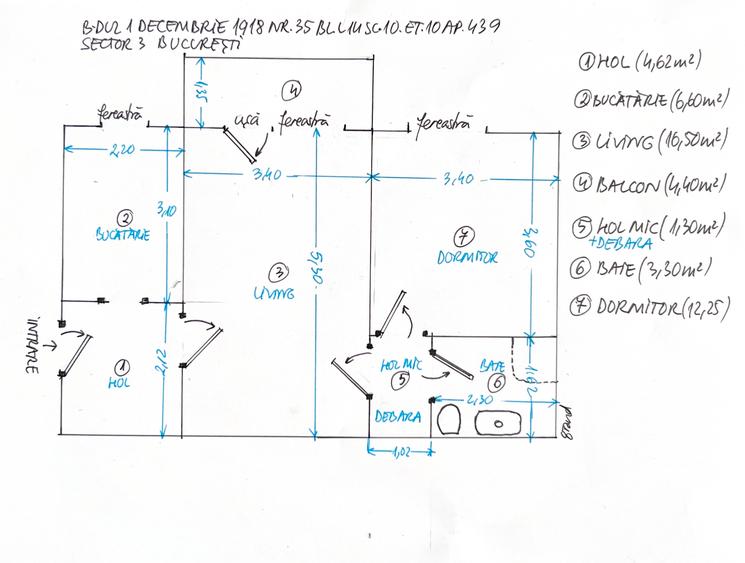 B-DUL 1 DECEMBRIE 1918 NR.35 BL.L14 SC.10.ET.10 AP.439
SECTOR 3 BUCUREȘTI
① HOL (4,62m²)
② BUCĂTĂRIE (6,60m²)
③ LIVING (16,50m²)
④ BALCON (4,40m²)
⑤ HOL MIC (1,30m²)
+DEBARA
⑥ BAIE (3,30m²)
⑦ DORMITOR (12,25)
④
fereastră
ușă
fereastră
fereastră
2,20
3,40
3,40
3,10
②
BUCĂTĂRIE
③
LIVING
5,30
⑦
DORMITOR
3,60
INTRARE
①
HOL
2,12
HOL MIC
⑤
DEBARA
BAIE
⑥
1,62
2,30
1,02